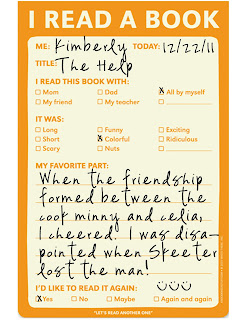 I READ A BOOK
ME: Kimberly TODAY: 12/22/11
TITLE: The Help
I READ THIS BOOK WITH:
Mom Dad X All by myself
My friend My teacher
IT WAS:
Long Funny Exciting
Short X Colorful Ridiculous
Scary Nuts
MY FAVORITE PART:
When the friendship
formed between the
cook minny and celia,
I cheered. I was disa-
pointed when Skeeter
lost the man!
I'D LIKE TO READ IT AGAIN:
X Yes No Maybe Again and again
"LET'S READ ANOTHER ONE!"